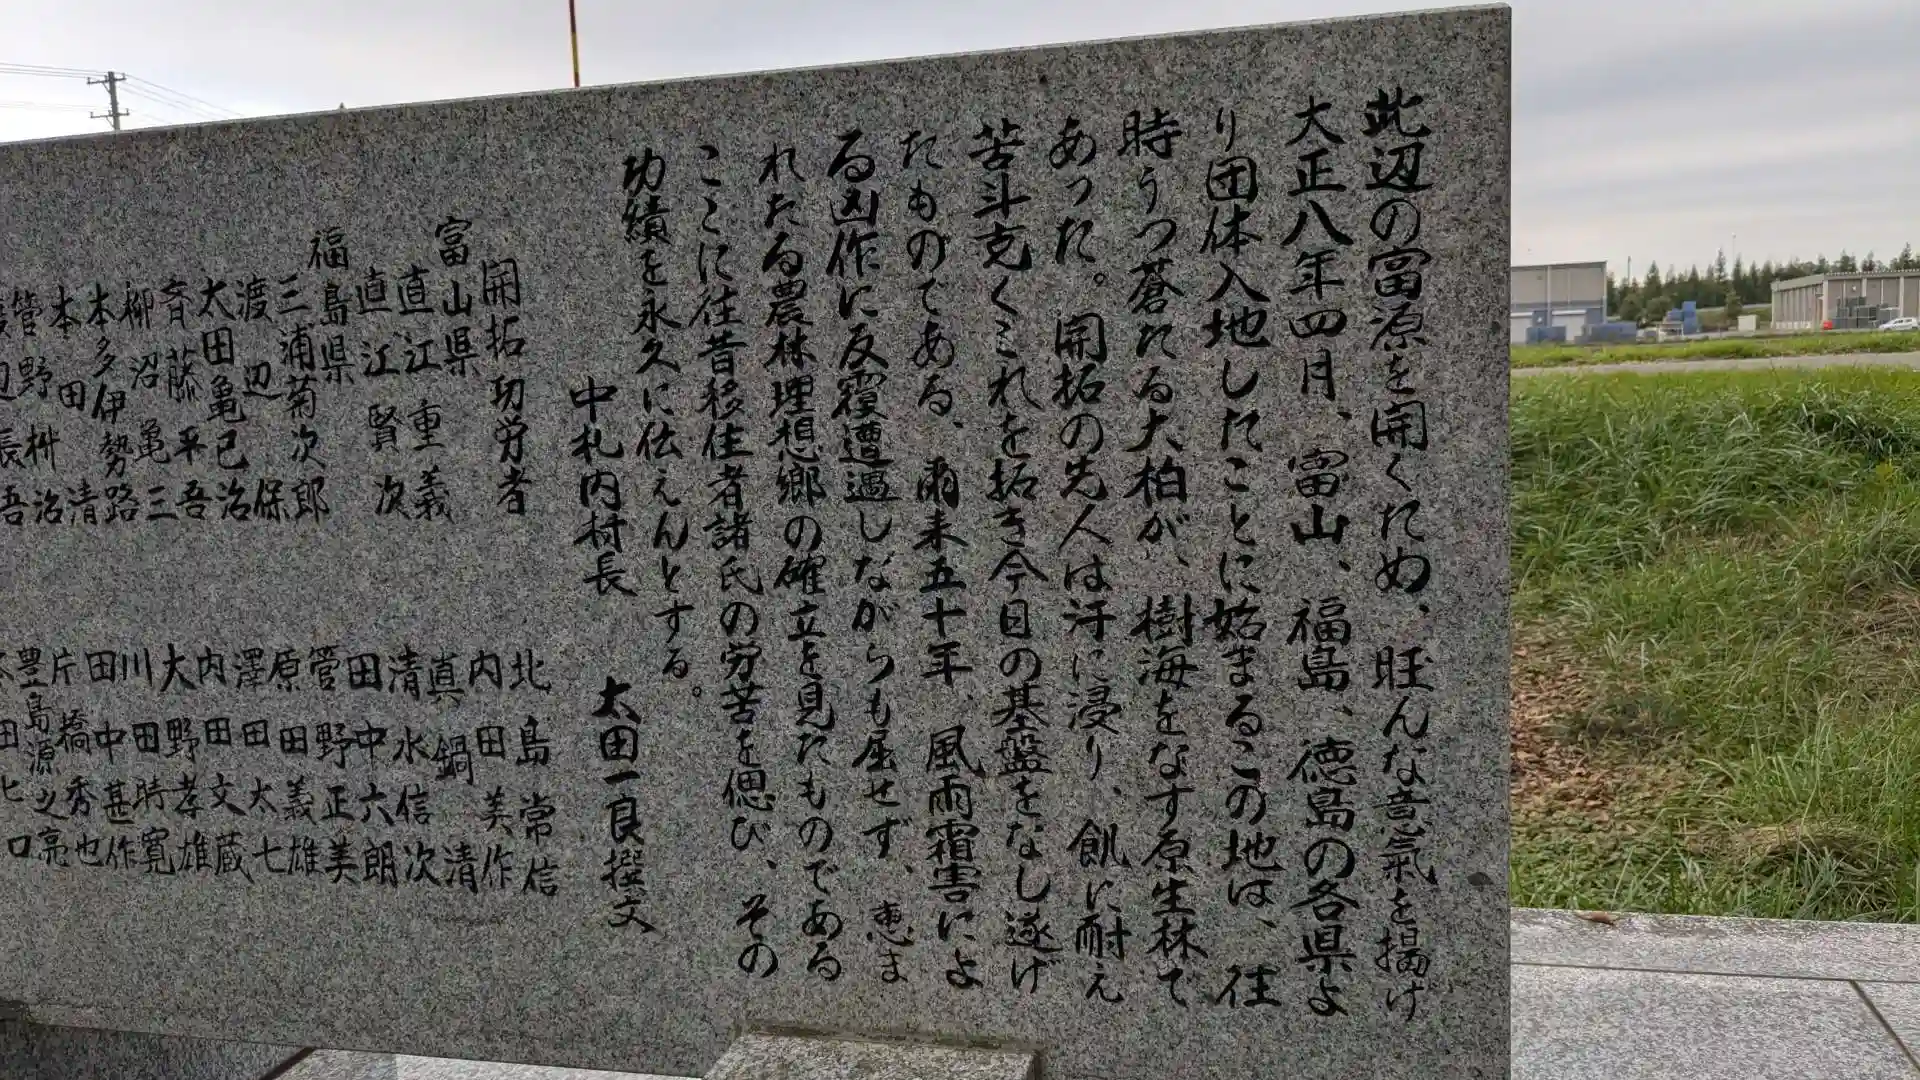 此辺の富源を開くため、旺んな意氣を揚げ
大正八年四月、富山、福島、徳島の各県よ
り団体入地したことに始まるこの地は、往
時うつ蒼たる大柏が、樹海をなす原生林で
あった。開拓の先人は汗に浸り、飢に耐え
苦斗克くこれを拓き今日の基盤をなし遂げ
たものである、爾来五十年、風雨霜害によ
る凶作に反覆遭遇しながらも屈せず、恵ま
れたる農林理想郷の確立を見たものである
ここに往昔移住者諸氏の労苦を偲び、その
功績を永久に伝えんとする。
中札内村長 太田一良撰文
開拓功労者
富山県
直江重義
直江賢次
福島県
三浦菊次郎
渡辺保
太田亀已治
斉藤平吾
柳沼亀三
本多伊勢路
本田清
管野桝治
渡辺長吾
北島常信
内田美作
真鍋清
清水信次
田中六朗
管野正美
原田義雄
澤田太七
内田文蔵
大野孝雄
川田時寛
田中甚作
片橋秀也
豊島源之亮